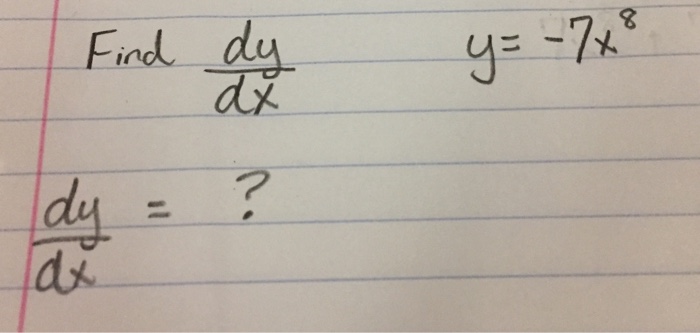 Find dy/dx y = -7x⁸
dy/dx = ?